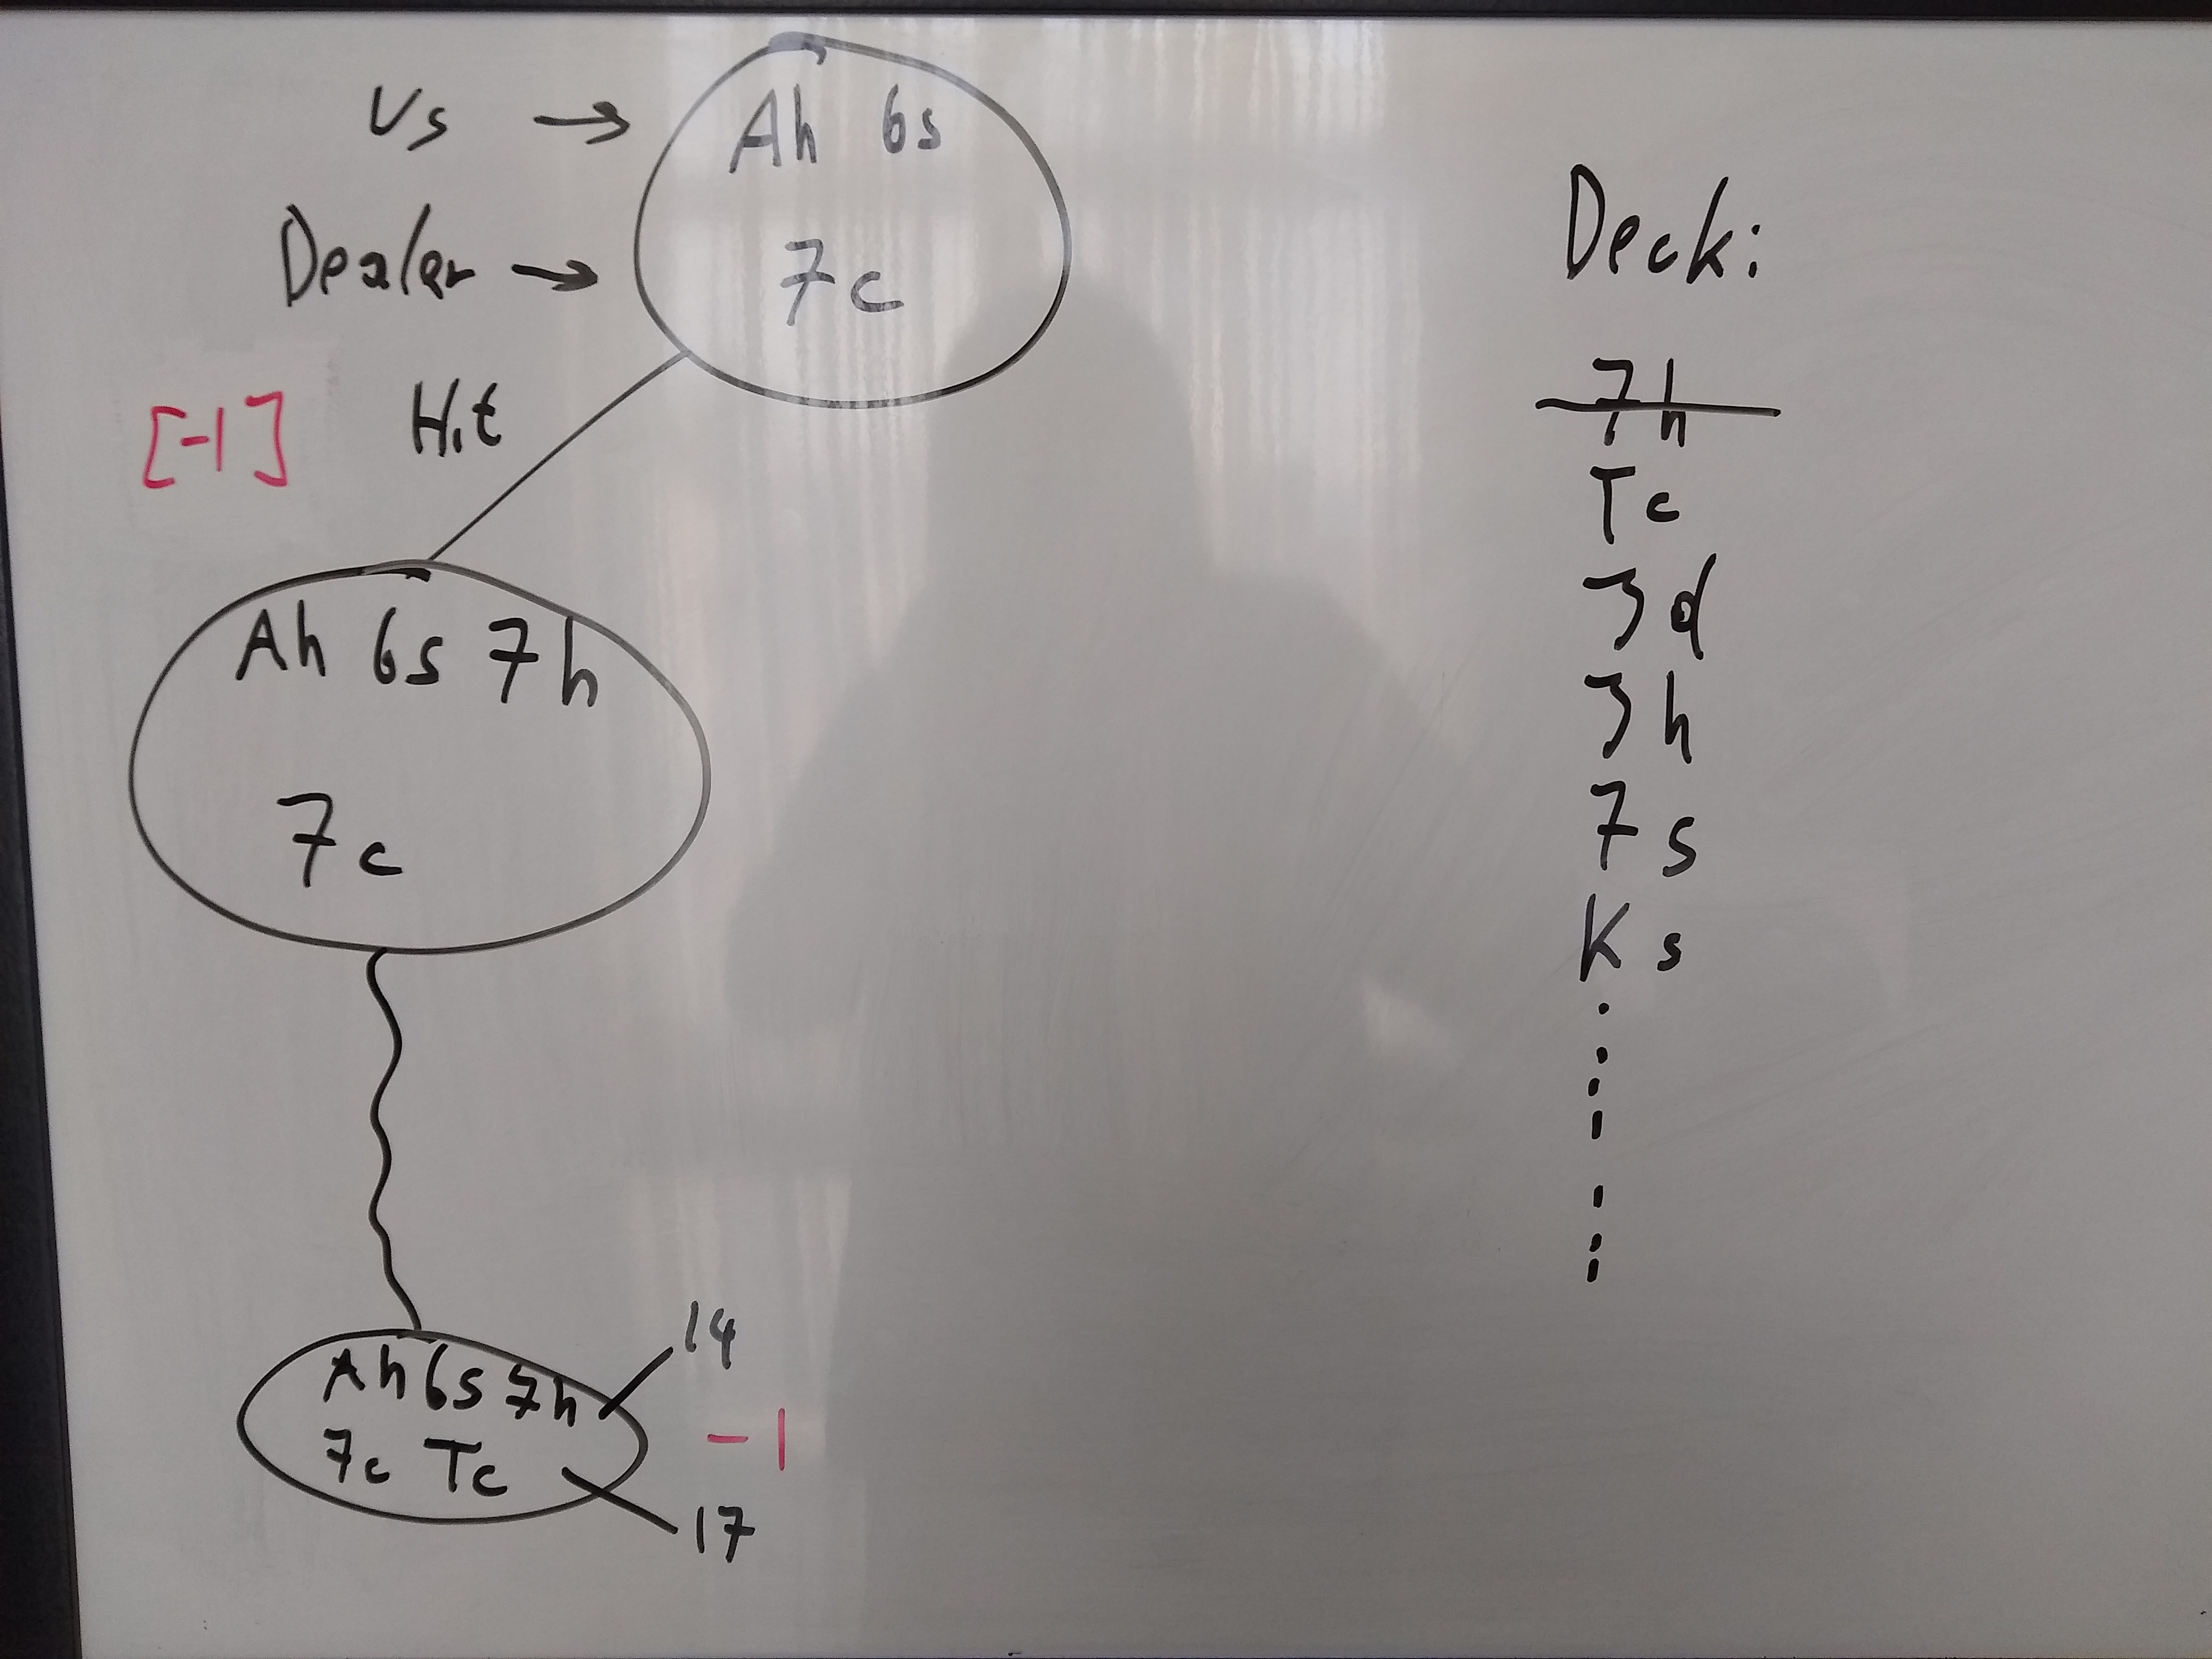 Us → Ah 6s
Dealer → 7c
[-1] Hit
Ah 6s 7h
7c
Ah 6s 7h
7c Tc
14
-1
17
Deck:
7h
Tc
3d
3h
7s
Ks